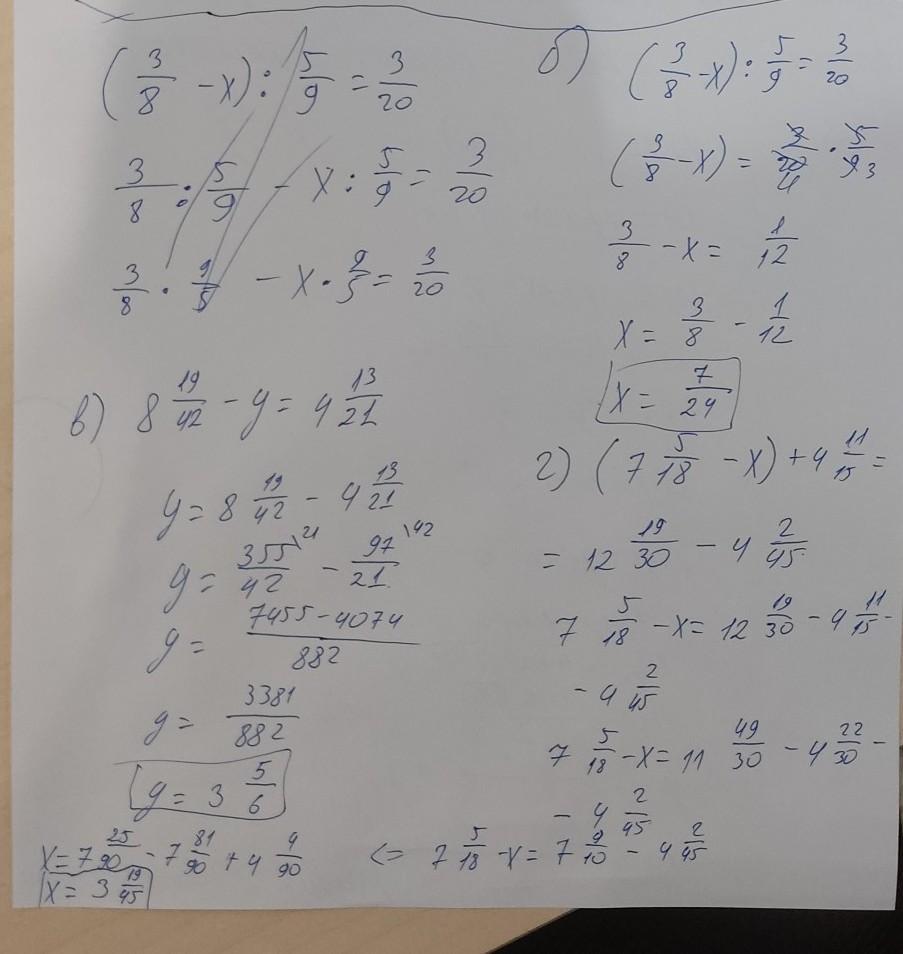 (3/8 - x) : 5/9 = 3/20
3/8 : 5/9 - x : 5/9 = 3/20
3/8 · 9/5 - x · 9/5 = 3/20
б) (3/8 - x) : 5/9 = 3/20
(3/8 - x) = 3/20 4 · 5/9 3
3/8 - x = 1/12
x = 3/8 - 1/12
x = 7/24
в) 8 19/42 - y = 4 13/21
y = 8 19/42 - 4 13/21
y = 355/42 \21 - 97/21 \42
y = 7455 - 4074/882
y = 3381/882
y = 3 5/6
г) (7 5/18 - x) + 4 11/15 =
= 12 19/30 - 4 2/45
7 5/18 - x = 12 19/30 - 4 11/15 -
- 4 2/45
7 5/18 - x = 11 49/30 - 4 22/30 -
- 4 2/45
<= 7 5/18 - x = 7 9/10 - 4 2/45
x = 7 25/90 - 7 81/90 + 4 4/90
x = 3 19/45